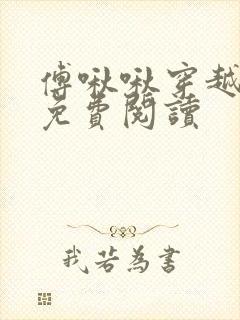 傅啾啾穿越
免費閱讀
我若為書